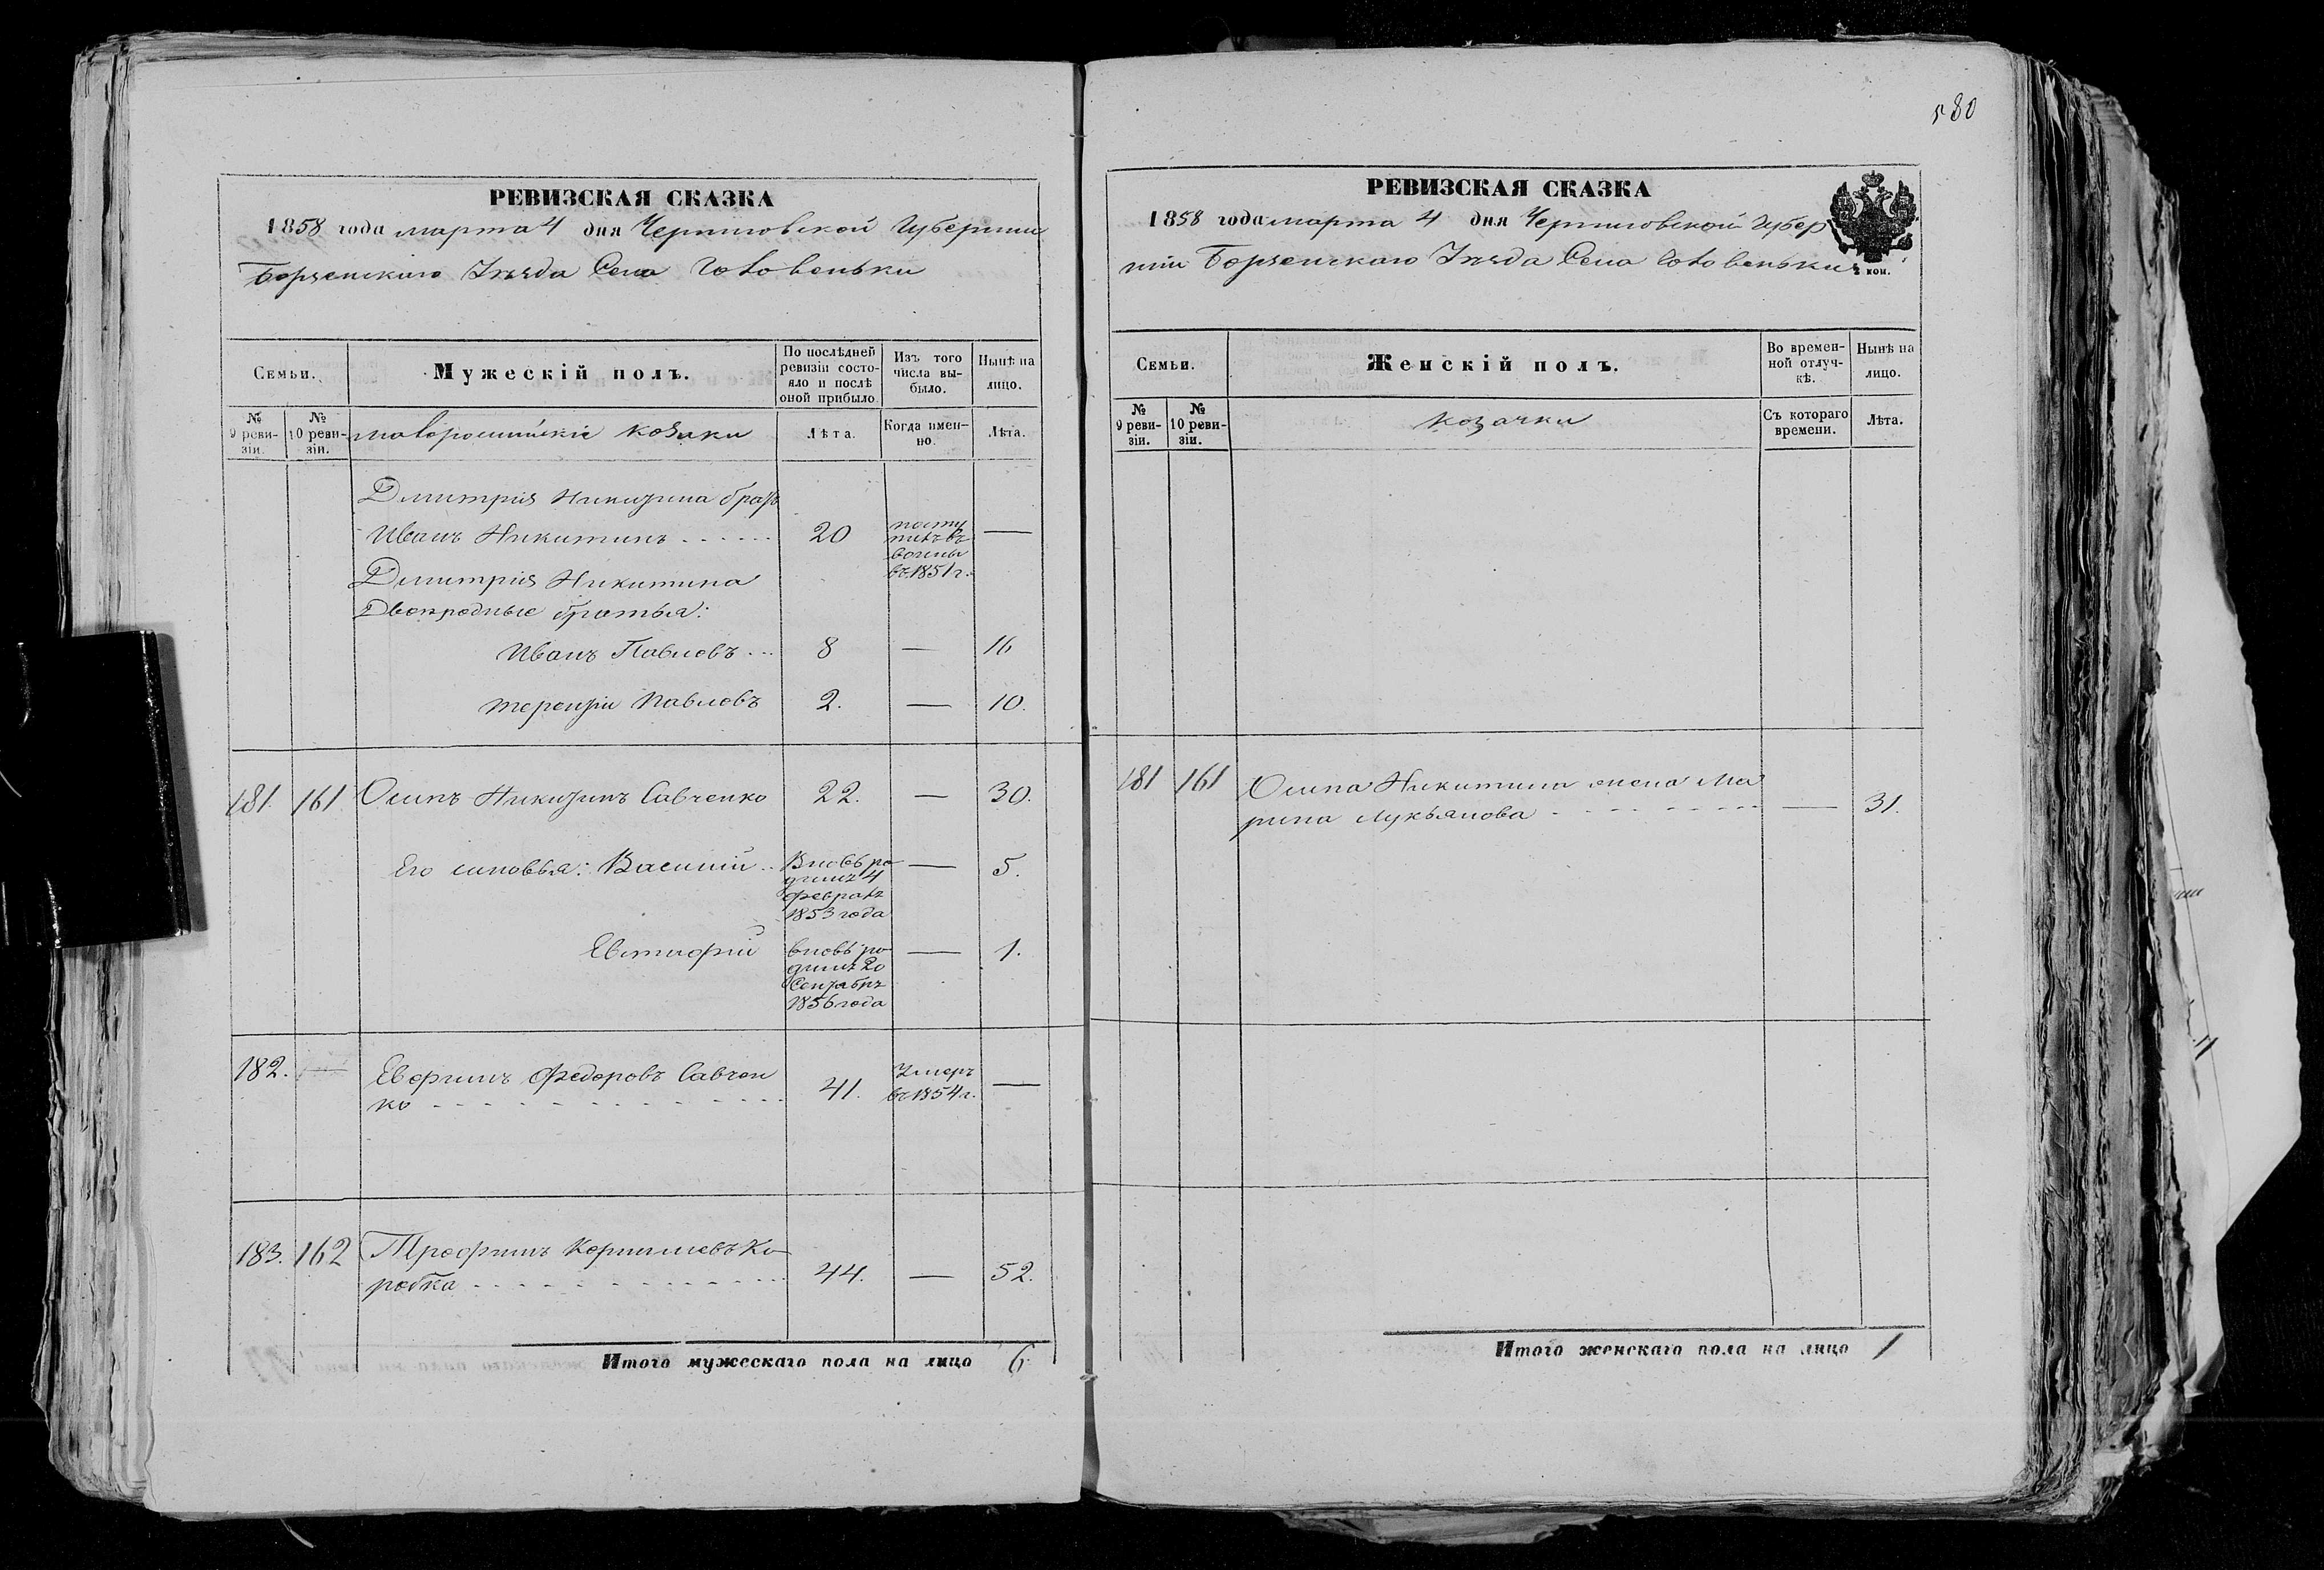 580
РЕВИЗСКАЯ СКАЗКА
1858 года марта 4 дня Черниговской Губернии
Борзенскаго Уѣзда Села Головеньки
Семьи.
Мужескій полъ.
По послѣдней
ревизіи состо-
яло и послѣ
оной прибыло.
Изъ того
числа вы-
было.
Нынѣ на
лицо.
№
9 реви-
зіи.
№
10 реви-
зіи.
малороссійскіе козаки
Лѣта.
Когда имен-
но.
Лѣта.
Дмитрія Никитина братъ
Иванъ Никитинъ 20 посту
пилъ въ
воины
въ 1851 г. —
Дмитрія Никитина
Двоюродные братья:
Иванъ Павловъ 8 — 16
Терентій Павловъ 2. — 10.
181. 161. Осипъ Никитинъ Савченко 22. — 30.
Его сыновья: Василій Вновь ро
дилъ 4
февраля
1853 года — 5.
Евтихій вновь ро
дилъ 20
Сентября
1856 года — 1.
182. — Евфимъ Федоровъ Савчен
ко 41. Умеръ
въ 1854 г. —
183. 162 Трофимъ Корнилиевъ Ко
робка 44. — 52.
Итого мужескаго пола на лицо 6
РЕВИЗСКАЯ СКАЗКА
1858 года марта 4 дня Черниговской Губер
ніи Борзенскаго Уѣзда Села Головеньки
коп.
Семьи.
Женскій полъ.
Во времен-
ной отлуч-
кѣ.
Нынѣ на
лицо.
№
9 реви-
зіи.
№
10 реви-
зіи.
козачки
Съ котораго
времени.
Лѣта.
181 161 Осипа Никитина жена Ма
рина Лукьянова — 31.
Итого женскаго пола на лицо 1